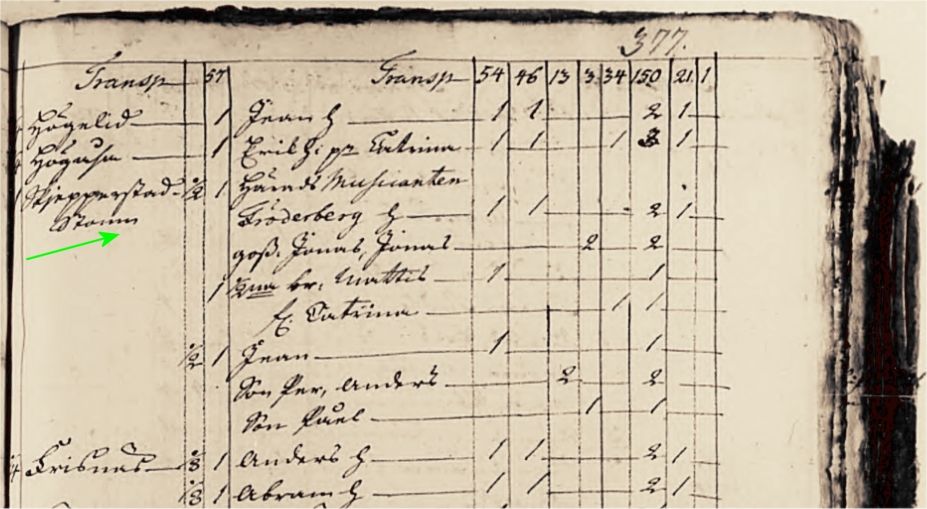 377.
Transp 57 Transp 54 46 13 3 34 150 21 1
Högelid 1 Jean h 1 1 2 1
1 Erik h: pr Catrina 1 1 1 3 1
Skjepperstad 1/2 1 Härads Musicanten
Stomn Fröderberg h 1 1 2 1
goß. Jonas, Jonas 2 2
1 br: Mattis 1 1
E. Catrina 1 1
1/2 1 Jean 1 1
Son Per, Anders 2 2
Son Påel 1 1
Krisnäs 1/3 1 Anders h 1 1 2 1
1/3 1 Abram h 1 1 2 1